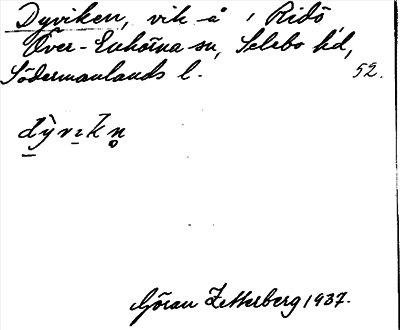 Dyviken, vik å i Ridö,
Över-Enhörna sn, Selebo hd,
Södermanlands l. 52.
dỳvıkn̥
Göran Zetterberg 1937.